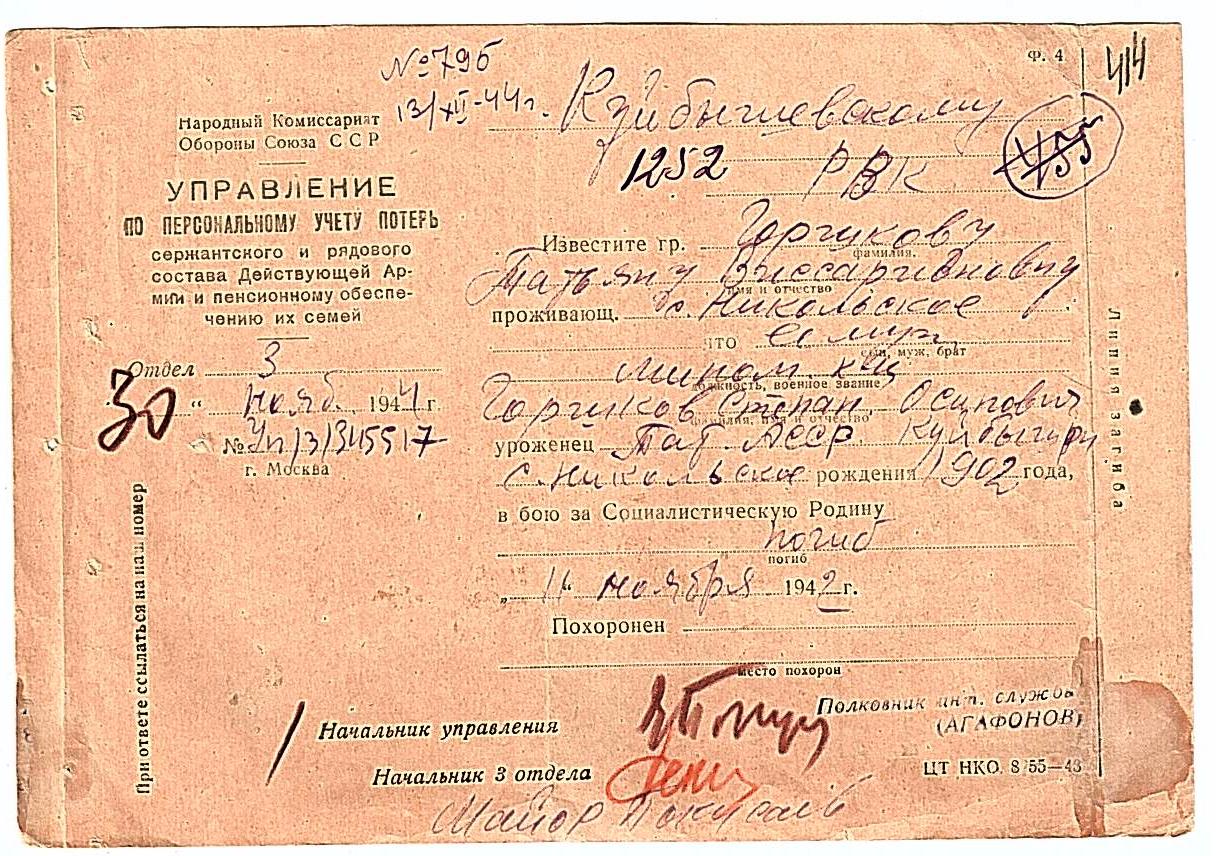 Ф. 4
414
№ 796
13/XII-44 г.
Куйбышевскому
1252 РВК
455
Народный Комиссариат
Обороны Союза ССР
УПРАВЛЕНИЕ
ПО ПЕРСОНАЛЬНОМУ УЧЕТУ ПОТЕРЬ
сержантского и рядового
состава Действующей Ар-
мии и пенсионному обеспе-
чению их семей
Отдел 3
30 " нояб. 1944 г.
№ Уп/3/345517
г. Москва
При ответе ссылаться на наш номер
Известите гр. Горшкову
фамилия,
Татьяну Виссарионовну
имя и отчество
проживающ. с. Никольское
что её муж
сын, муж, брат
должность, военное звание
Горшков Степан Осипович
фамилия, имя и отчество
уроженец Тат. АССР,
с. Никольское рождения 1902 года,
в бою за Социалистическую Родину
погиб
погиб
„ 11 “ ноября 1942 г.
Похоронен
место похорон
Линия загиба
Начальник управления
Полковник инт. службы
(АГАФОНОВ)
Начальник 3 отдела
Майор
ЦТ НКО. 8/55—43